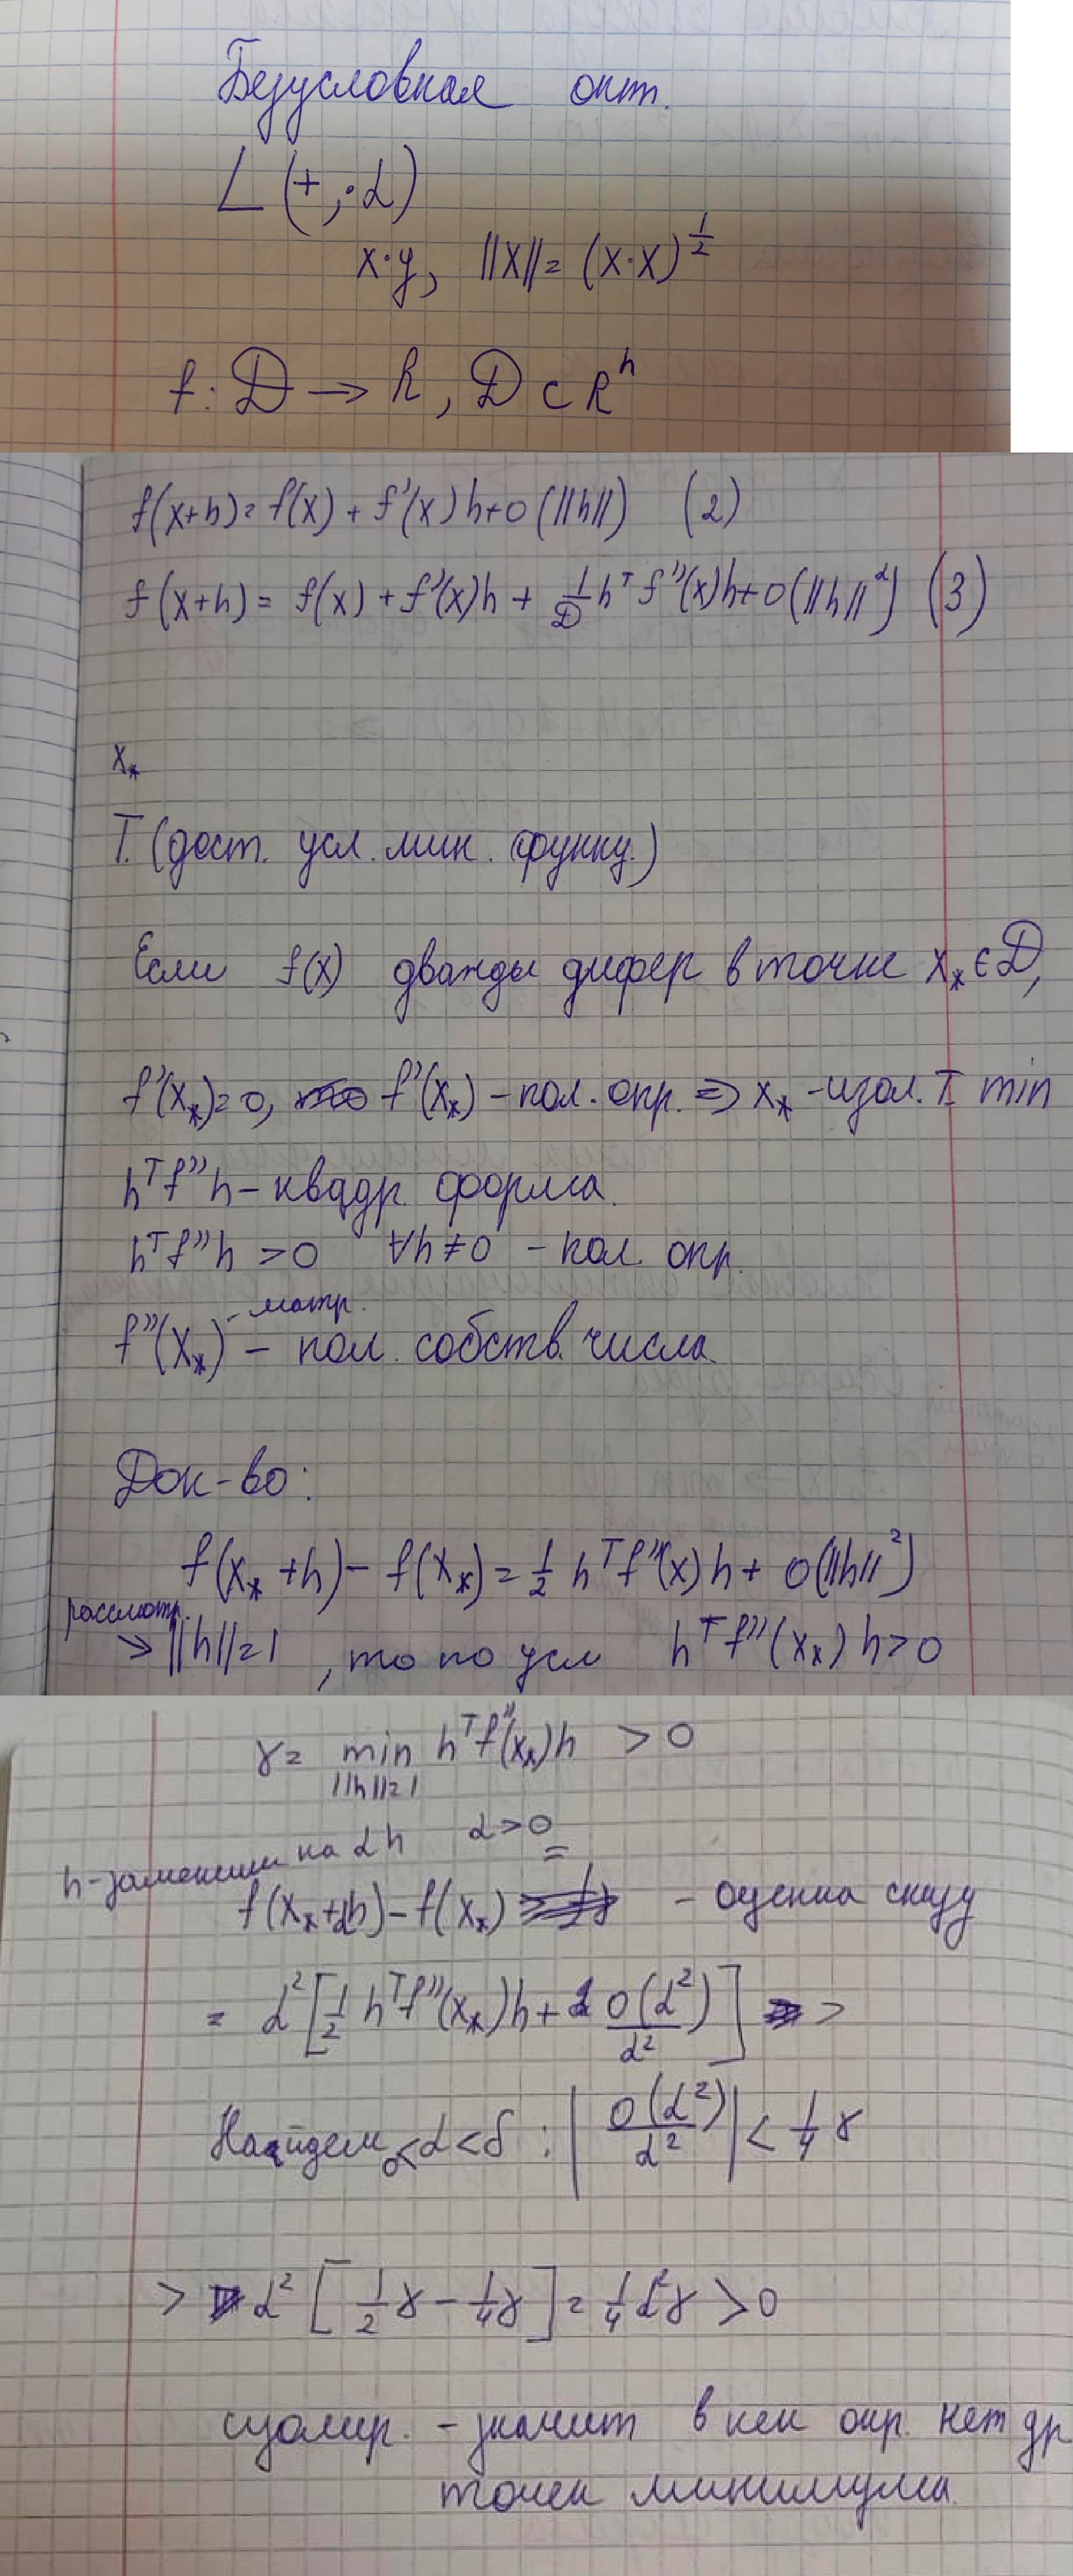 Безусловная опт.
L (+, ·α)
x·y, ||x|| = (x·x)^{1/2}
f: D → R, D ⊂ R^n
f(x+h) = f(x) + f'(x)h + o(||h||) (2)
f(x+h) = f(x) + f'(x)h + 1/2 h^T f''(x)h + o(||h||^2) (3)
x_*
Т. (дост. усл. мин. функц.)
Если f(x) дважды дифер в точке x_* ∈ D,
f'(x_*) = 0, f'(x_*) – пол. опр. ⇒ x_* – изол. т. min
h^T f'' h – квадр. форма.
h^T f'' h > 0 ∀h ≠ 0 – пол. опр.
f''(x_*) – матр. – пол. собств. числа.
Док-во:
f(x_* + h) – f(x_*) = 1/2 h^T f''(x) h + o(||h||^2)
рассмотр.
> ||h|| = 1, то по усл h^T f''(x_*) h > 0
γ = min h^T f''(x_*) h > 0
||h||=1
h – заменим на αh α > 0
f(x_* + αh) – f(x_*) – оценка снизу
= α^2 [1/2 h^T f''(x_*) h + o(α^2)/α^2] >
Найдем 0 < α < δ : |o(α^2)/α^2| < 1/4 γ
> α^2 [1/2 γ – 1/4 γ] = 1/4 α^2 γ > 0
изолир. – значит в нек опр. нет др
точек минимума.